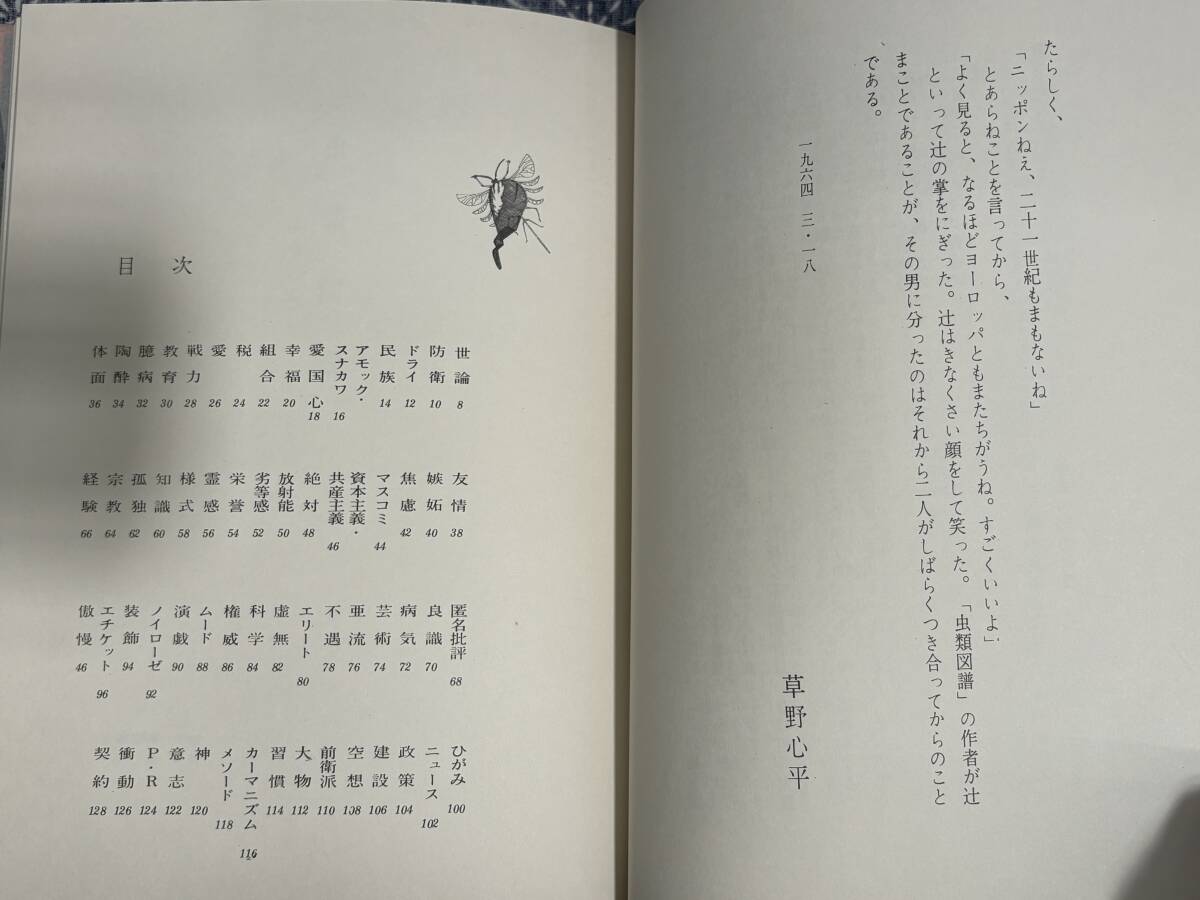 たらしく、
「ニッポンねえ、二十一世紀もまもないね」
とあらねことを言ってから、
「よく見ると、なるほどヨーロッパともまたちがうね。すごくいいよ」
といって辻の掌をにぎった。辻はきなくさい顔をして笑った。「虫類図譜」の作者が辻
まことであることが、その男に分ったのはそれから二人がしばらくつき合ってからのこと
である。
一九六四 三・一八
草野心平
目次
世論 8
防衛 10
ドライ 12
民族 14
アモック・
スナカワ 16
愛国心 18
幸福 20
組合 22
税 24
愛 26
戦力 28
教育 30
臆病 32
陶酔 34
体面 36
友情 38
嫉妬 40
焦慮 42
マスコミ 44
資本主義・
共産主義 46
絶対 48
放射能 50
劣等感 52
栄誉 54
霊感 56
様式 58
知識 60
孤独 62
宗教 64
経験 66
匿名批評 68
良識 70
病気 72
芸術 74
亜流 76
不遇 78
エリート 80
虚無 82
科学 84
権威 86
ムード 88
演戯 90
ノイローゼ 92
装飾 94
エチケット 96
傲慢 46
ひがみ 100
ニュース 102
政策 104
建設 106
空想 108
前衛派 110
大物 112
習慣 114
カーマニズム 116
メソード 118
神 120
意志 122
P・R 124
衝動 126
契約 128